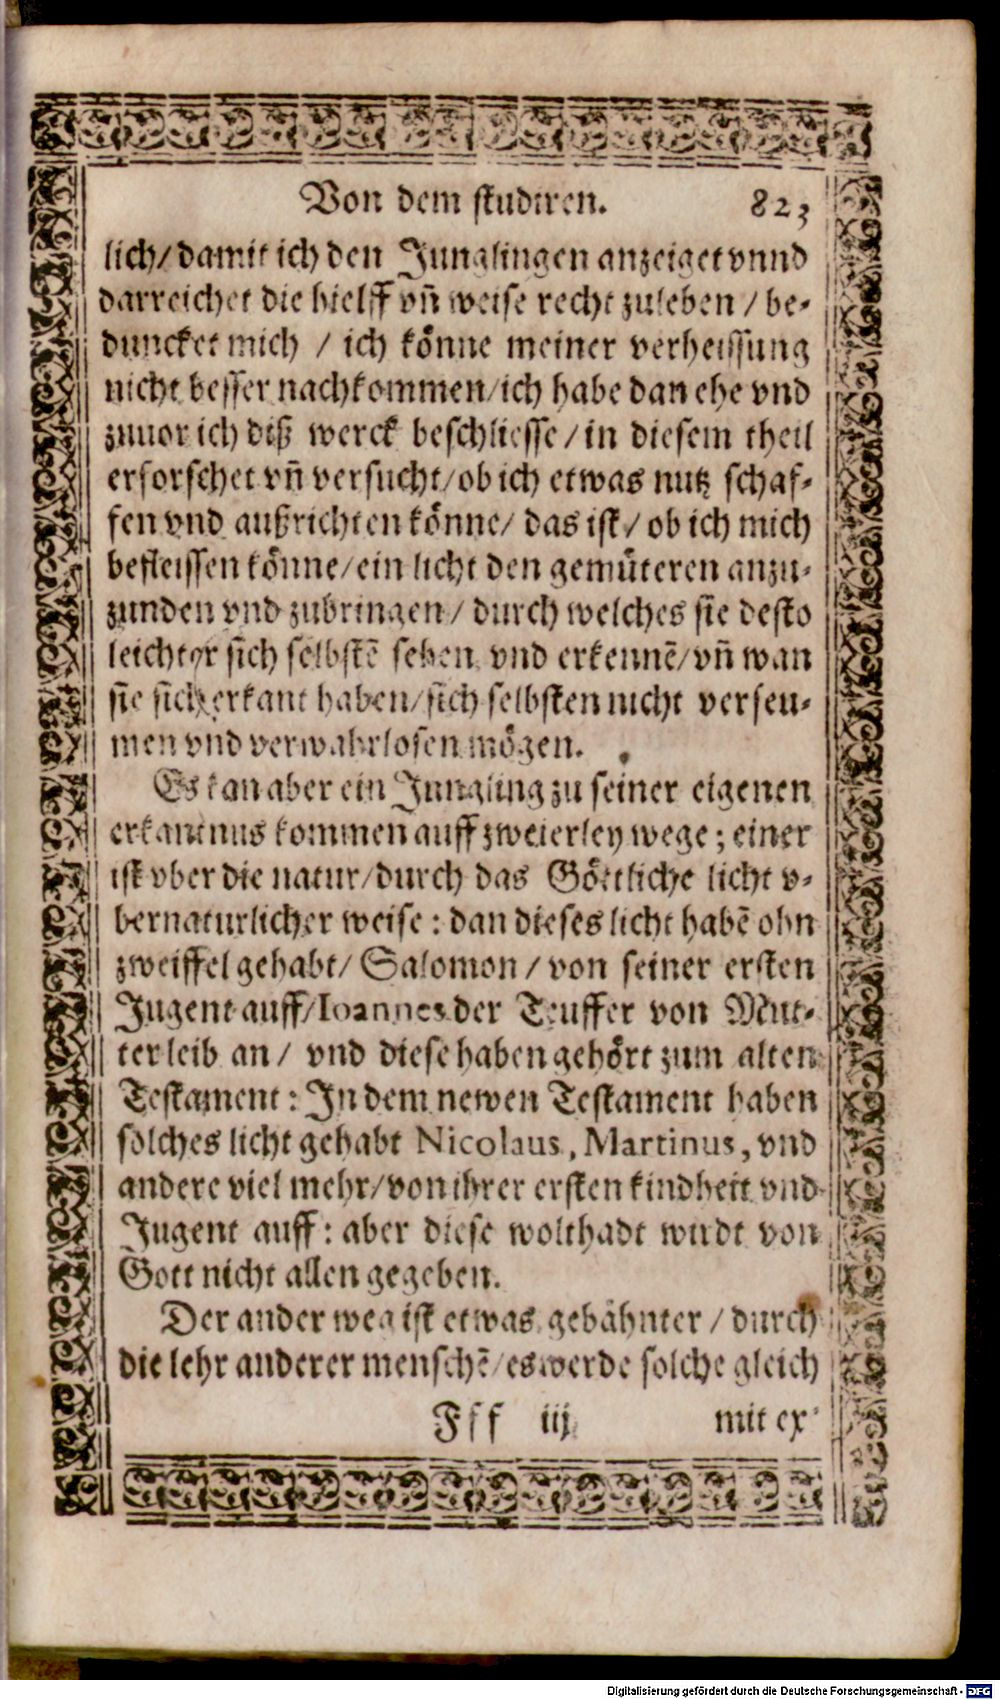 Von dem studiren. 823
lich/ damit ich den Junglingen anzeiget vnnd
darreichet die hielff vn̄ weise recht zuleben / be-
duncket mich / ich könne meiner verheissung
nicht besser nachkommen/ich habe dan ehe vnd
zuuor ich diß werck beschliesse / in diesem theil
erforschet vn̄ versucht/ob ich etwas nutz schaf-
fen vnd außrichten könne/ das ist / ob ich mich
befleissen könne/ein licht den gemüteren anzu-
zunden vnd zubringen/ durch welches sie desto
leichter sich selbstē sehen vnd erkennē/vn̄ wan
sie sich erkant haben/sich selbsten nicht verseu-
men vnd verwahrlosen mögen.
Es kan aber ein Jungling zu seiner eigenen
erkantnus kommen auff zweierley wege; einer
ist vber die natur/durch das Göttliche licht v-
bernaturlicher weise: dan dieses licht habē ohn
zweiffel gehabt/ Salomon / von seiner ersten
Jugent auff/Ioannes der Teuffer von Mut-
ter leib an/ vnd diese haben gehört zum alten
Testament: In dem newen Testament haben
solches licht gehabt Nicolaus, Martinus, vnd
andere viel mehr/von ihrer ersten kindheit vnd
Jugent auff: aber diese wolthadt wirdt von
Gott nicht allen gegeben.
Der ander weg ist etwas gebähnter / durch
die lehr anderer menschē/es werde solche gleich
Fff iij mit ex-
Digitalisierung gefördert durch die Deutsche Forschungsgemeinschaft - DFG